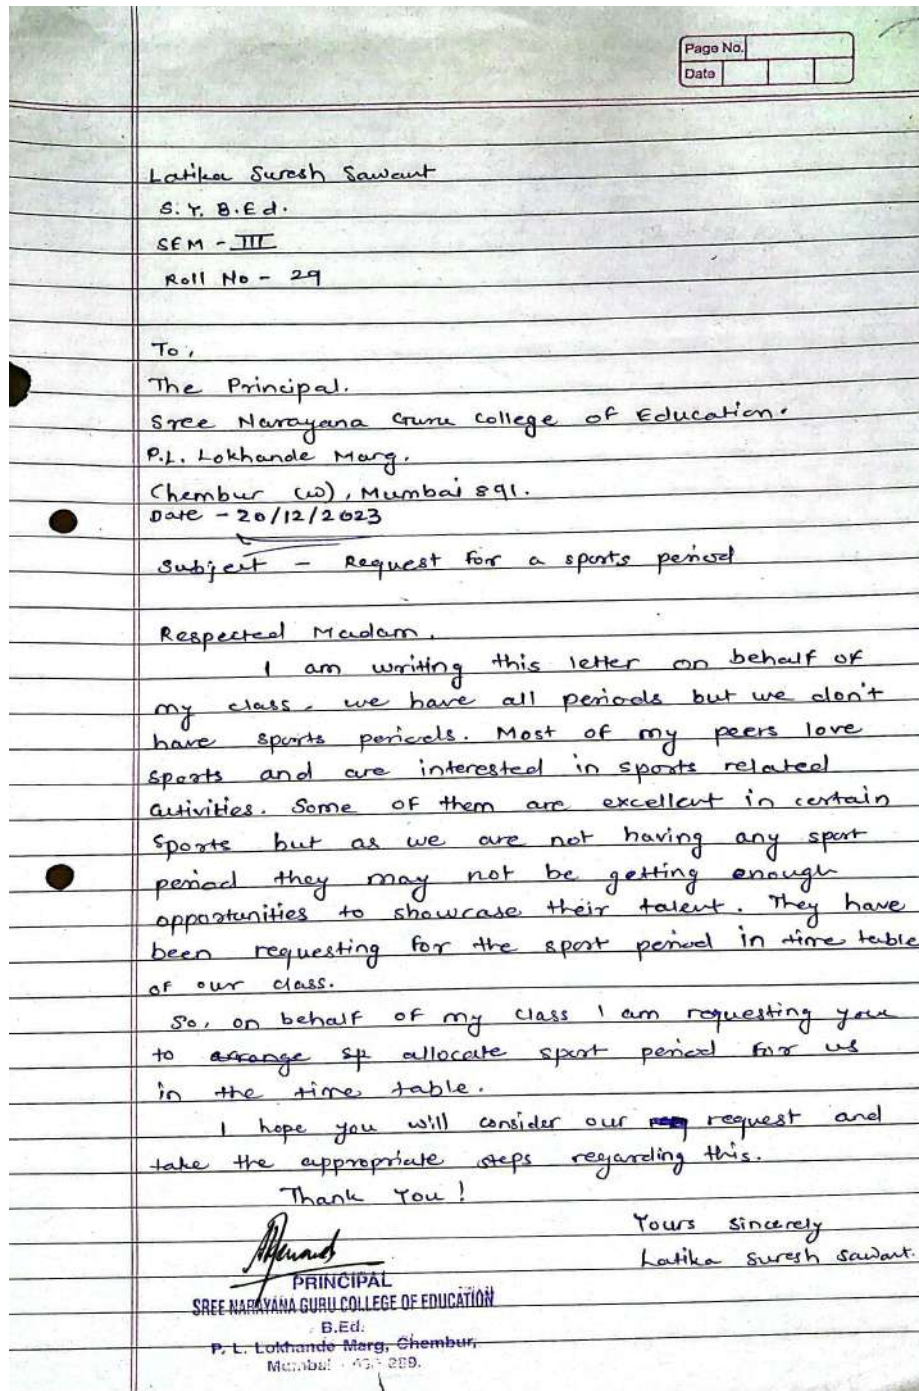 Page No.
Date
Latika Suresh Sawant
S.Y. B.Ed.
SEM - III
Roll No - 29
To,
The Principal.
Sree Narayana Guru College of Education.
P.L. Lokhande Marg.
Chembur (W), Mumbai 891.
Date - 20/12/2023
Subject - Request for a sports period
Respected Madam,
I am writing this letter on behalf of
my class. we have all periods but we don't
have sports periods. Most of my peers love
sports and are interested in sports related
activities. Some of them are excellent in certain
sports but as we are not having any sport
period they may not be getting enough
opportunities to showcase their talent. They have
been requesting for the sport period in time table
of our class.
So, on behalf of my class I am requesting you
to arrange sp allocate sport period for us
in the time table.
I hope you will consider our request and
take the appropriate steps regarding this.
Thank You!
Yours Sincerely
Latika Suresh Sawant.
PRINCIPAL
SREE NARAYANA GURU COLLEGE OF EDUCATION
B.Ed.
P. L. Lokhande Marg, Chembur,
Mumbai